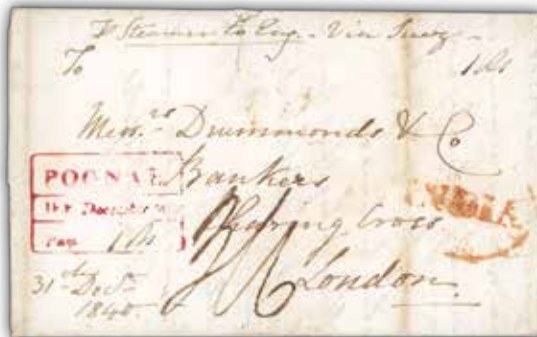 Pr Steamer to Eng. - Via Suez -
To
1 Rs
Messrs Drummonds & Co
Bankers
Charing Cross
London.
POONA
December
Paid 1 Rs
31st Decr
1840
INDIA